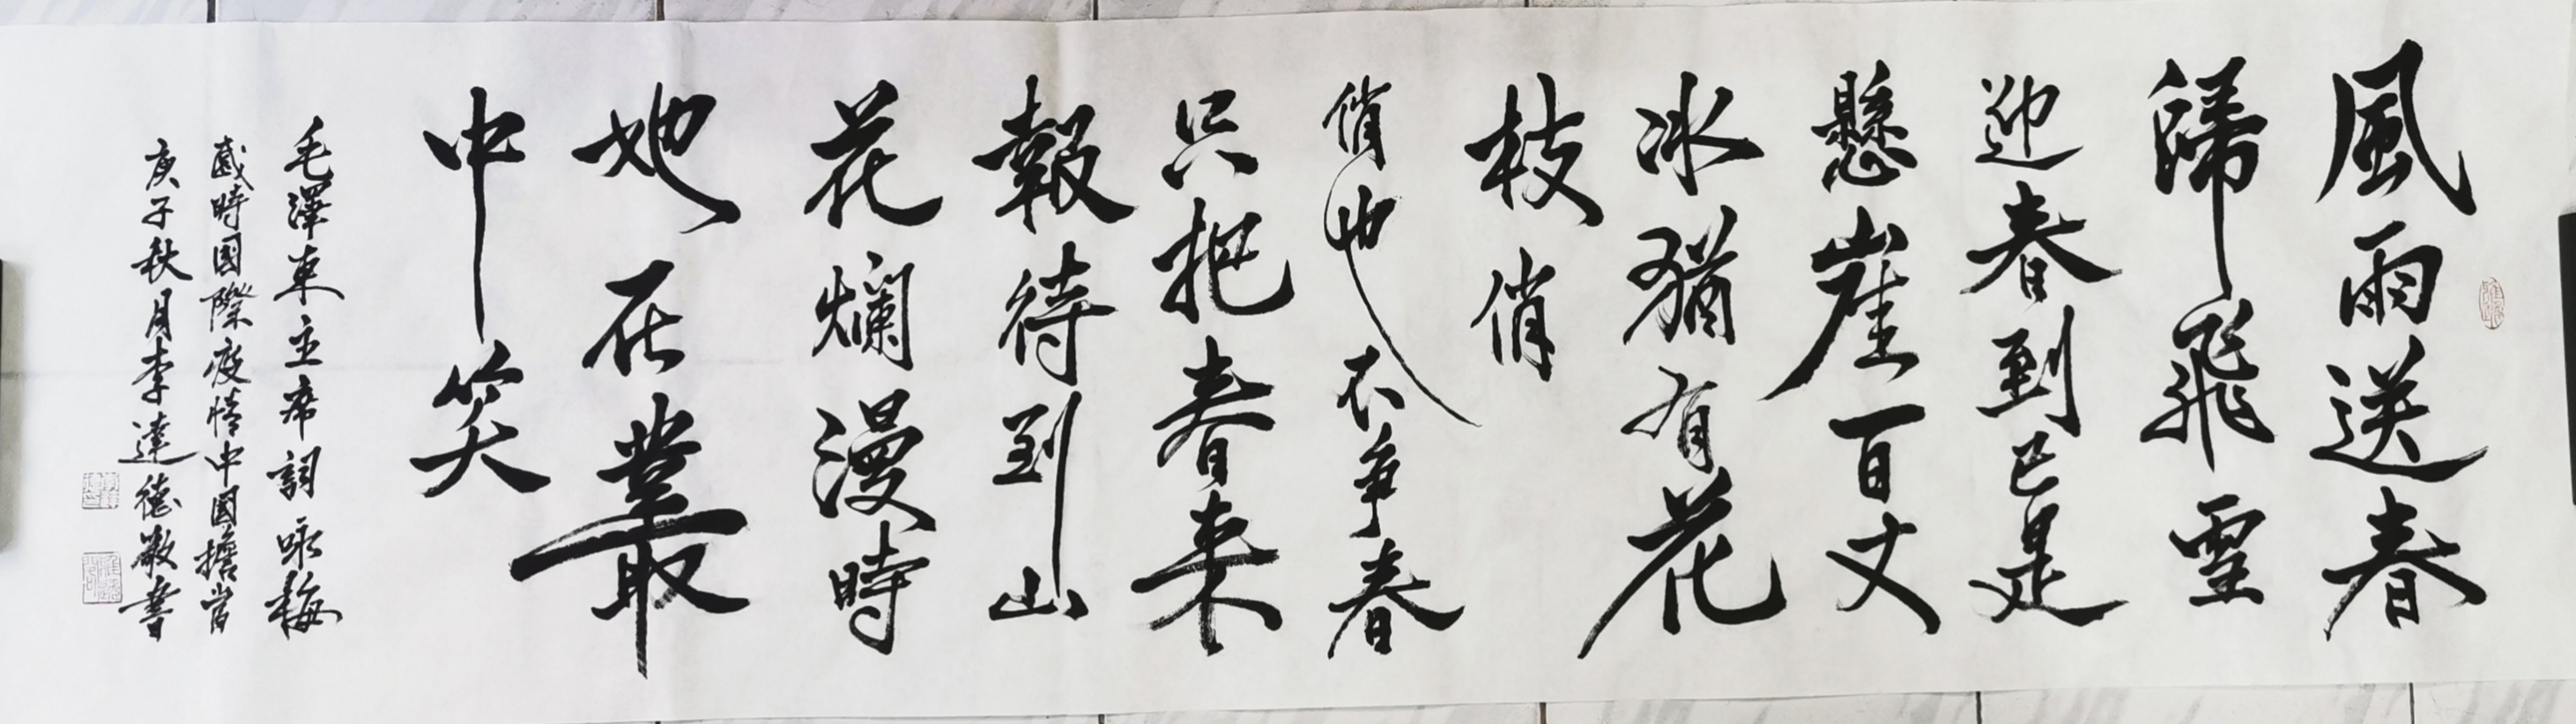 風雨送春
歸飛雪
迎春到已是
懸崖百丈
冰猶有花
枝俏
俏也不争春
只把春来
報待到山
花爛漫時
她在叢
中笑
毛澤東主席詞咏梅
感時國際疫情中國擔當
庚子秋月李達德敬書